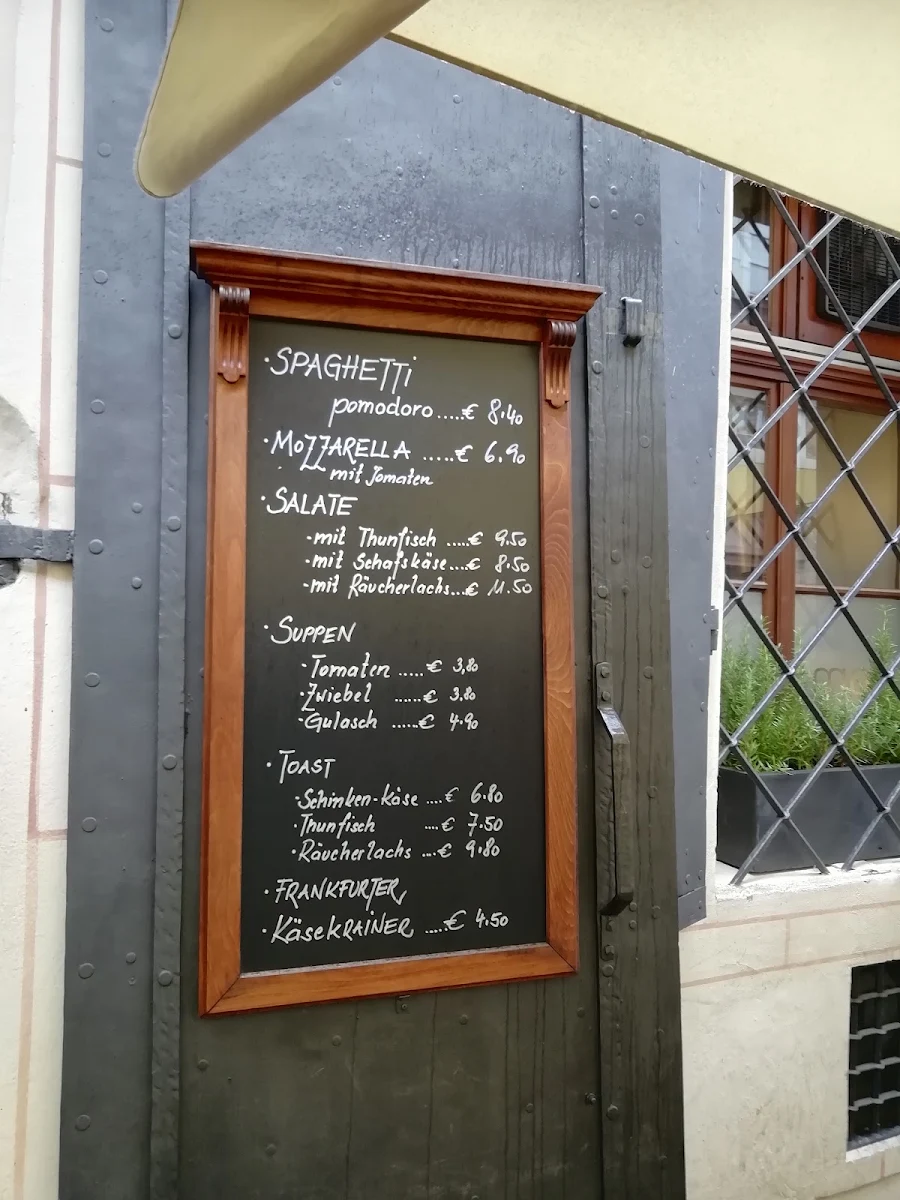 · SPAGHETTi
pomodoro.....€ 8.40
· MOZZARELLA .....€ 6.90
mit Tomaten
· SALATE
-mit Thunfisch .....€ 9.50
-mit Schafskäse....€ 8.50
-mit Räucherlachs...€ 11.50
· SUPPEN
· Tomaten .....€ 3,80
· Zwiebel .....€ 3.80
· Gulasch ......€ 4.90
· TOAST
· Schinken-Käse ....€ 6.80
· Thunfisch ....€ 7.50
· Räucherlachs ....€ 9.80
· FRANKFURTER
· KäseKRAINER .....€ 4.50